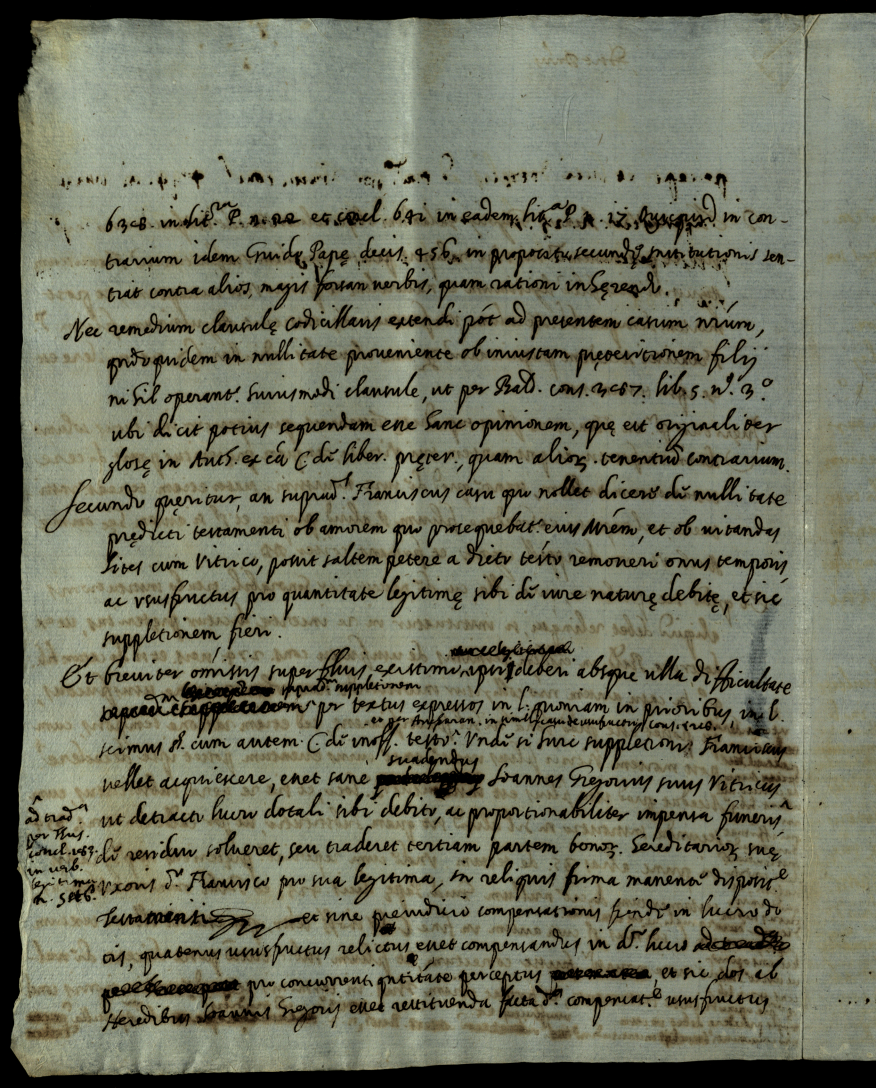 in con-
trarium idem Guido Papę decis. 456. in proposito secundę institutionis sen-
tiat contra alios, magis forsan verbis, quam rationi inhęrendo.
Nec remedium clausulę codicillaris extendi pót ad presentem casum nrũm,
quandoquidem in nullitate proveniente ob iniustam pręteritionem filij
nihil operant.r huiusmodi clausule, ut per Bald. cons. 3487. lib. 5. n.o 3.o
ubi dicit potius sequendam esse hanc opinionem, quę est originaliter
glosę in Auth. ex cã C. de liber. pręter., quam alioꝝ tenentiũ contrarium.
Secundo quęritur, an suprad.s Franciscus casu quo nollet dicere de nullitate
prędicti testamenti ob amorem quo prosequebat.r eius Mrẽm, et ob vitandas
lites cum Vitrico, possit saltem petere a dicto testo removeri onus temporis
ac ususfructus pro quantitate legitimę sibi de iure naturę debitę, et sic
suppletionem fieri.
Et breviter omissis superfluis existimo ipsi deberi absque ulla difficultate
suprad.m suppletionem
per textus expressos in l. quoniam in prioribus, in l.
scimus §. cum autem. C. de inoff. testo. Unde si huic suppletioni Franciscus
suadendus
vellet acquiescere, esset sane Joannes Gregorius suus Vitricus
ut detracto lucro dotali sibi debito, ac proportionabiliter impensa funeris,
de residuo solveret, seu traderet tertiam partem bonoꝝ hereditarioꝝ suę
Uxoris d.o Francisco pro sua legitima, in reliquis firma manente disposit.e
testamenti et sine preiudicio compensationis fiendę in lucro do
tis, quatenus ususfructus relictus esset compensandus in d.o lucro
pro concurrenti qntitate perceptus, et sic dos ab
Heredibus Joannis Gregorij esset restituenda facta d.a compensat.e ususfructus
ad trad.a
per Hus.
concl.
in verb.
legitima